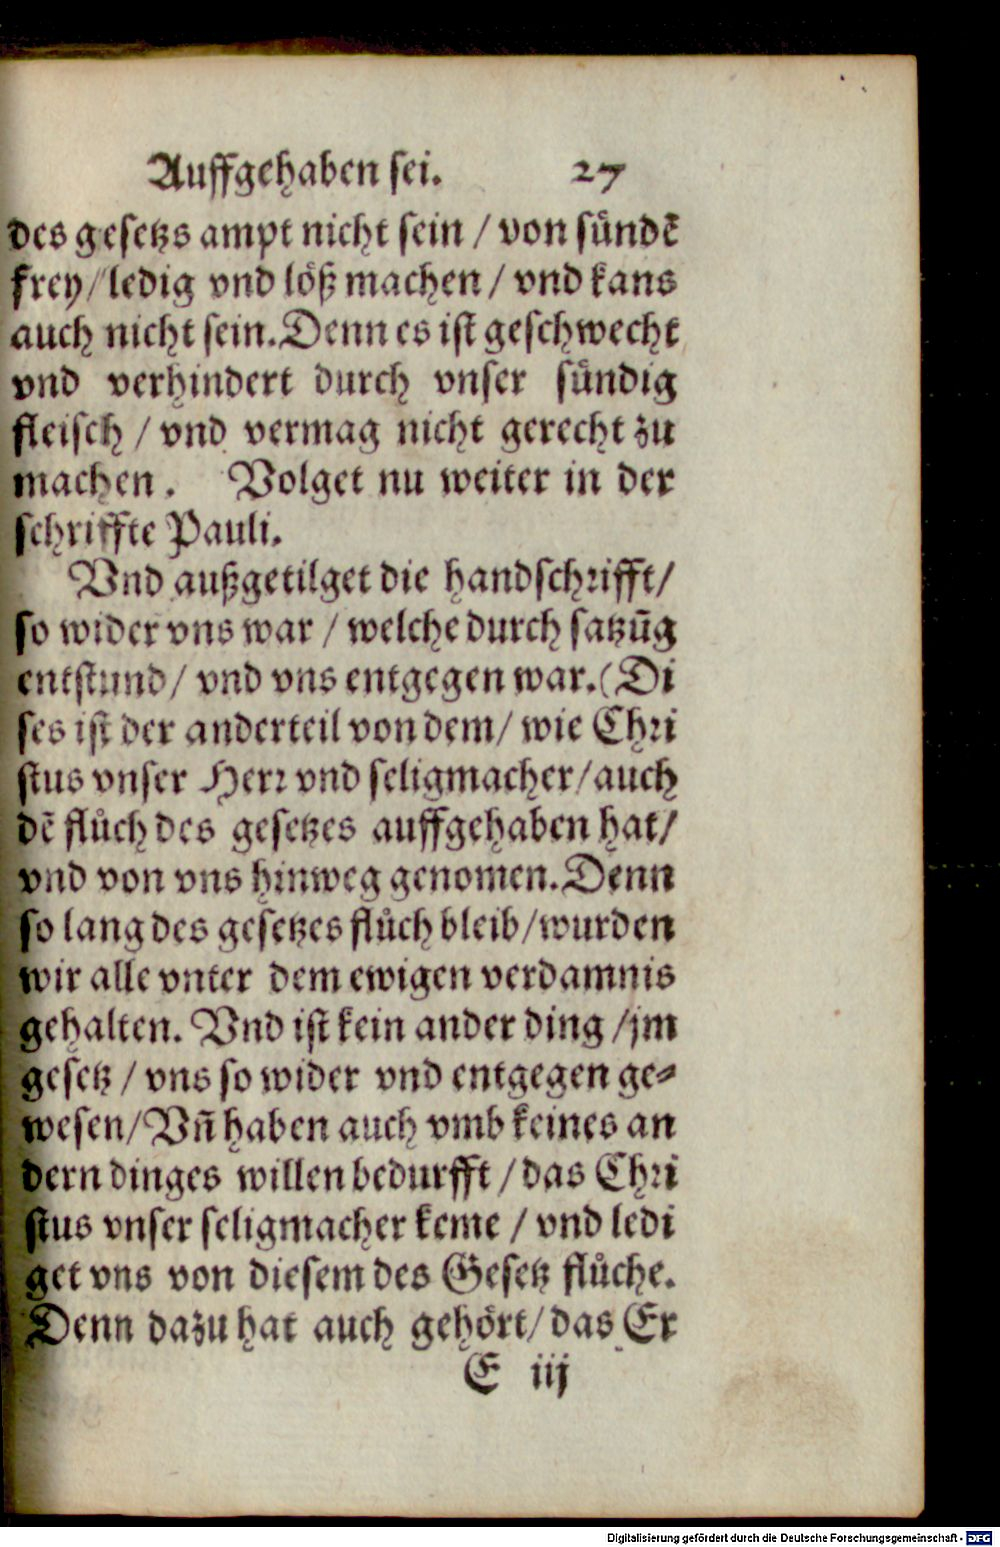 Auffgehaben sei. 27
des gesetzs ampt nicht sein / von suͤndẽ
frey / ledig vnd loͤß machen / vnd kans
auch nicht sein. Denn es ist geschwecht
vnd verhindert durch vnser suͤndig
fleisch / vnd vermag nicht gerecht zu
machen. Volget nu weiter in der
schriffte Pauli.
Vnd außgetilget die handschrifft /
so wider vns war / welche durch satzũg
entstund / vnd vns entgegen war. (Di
ses ist der anderteil von dem / wie Chri
stus vnser Herr vnd seligmacher / auch
dẽ fluͤch des gesetzes auffgehaben hat /
vnd von vns hinweg genomen. Denn
so lang des gesetzes fluͤch bleib / wurden
wir alle vnter dem ewigen verdamnis
gehalten. Vnd ist kein ander ding / jm
gesetz / vns so wider vnd entgegen ge⸗
wesen / Vñ haben auch vmb keines an
dern dinges willen bedurfft / das Chri
stus vnser seligmacher keme / vnd ledi
get vns von diesem des Gesetz fluͤche.
Denn dazu hat auch gehoͤrt / das Er
E iij
Digitalisierung gefördert durch die Deutsche Forschungsgemeinschaft - DFG